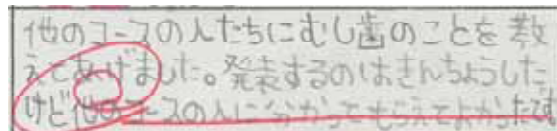 他のコースの人たちにむし歯のことを教
えてあげました。発表するのはきんちょうした
けど他のコースの人に分かってもらえてよかったです